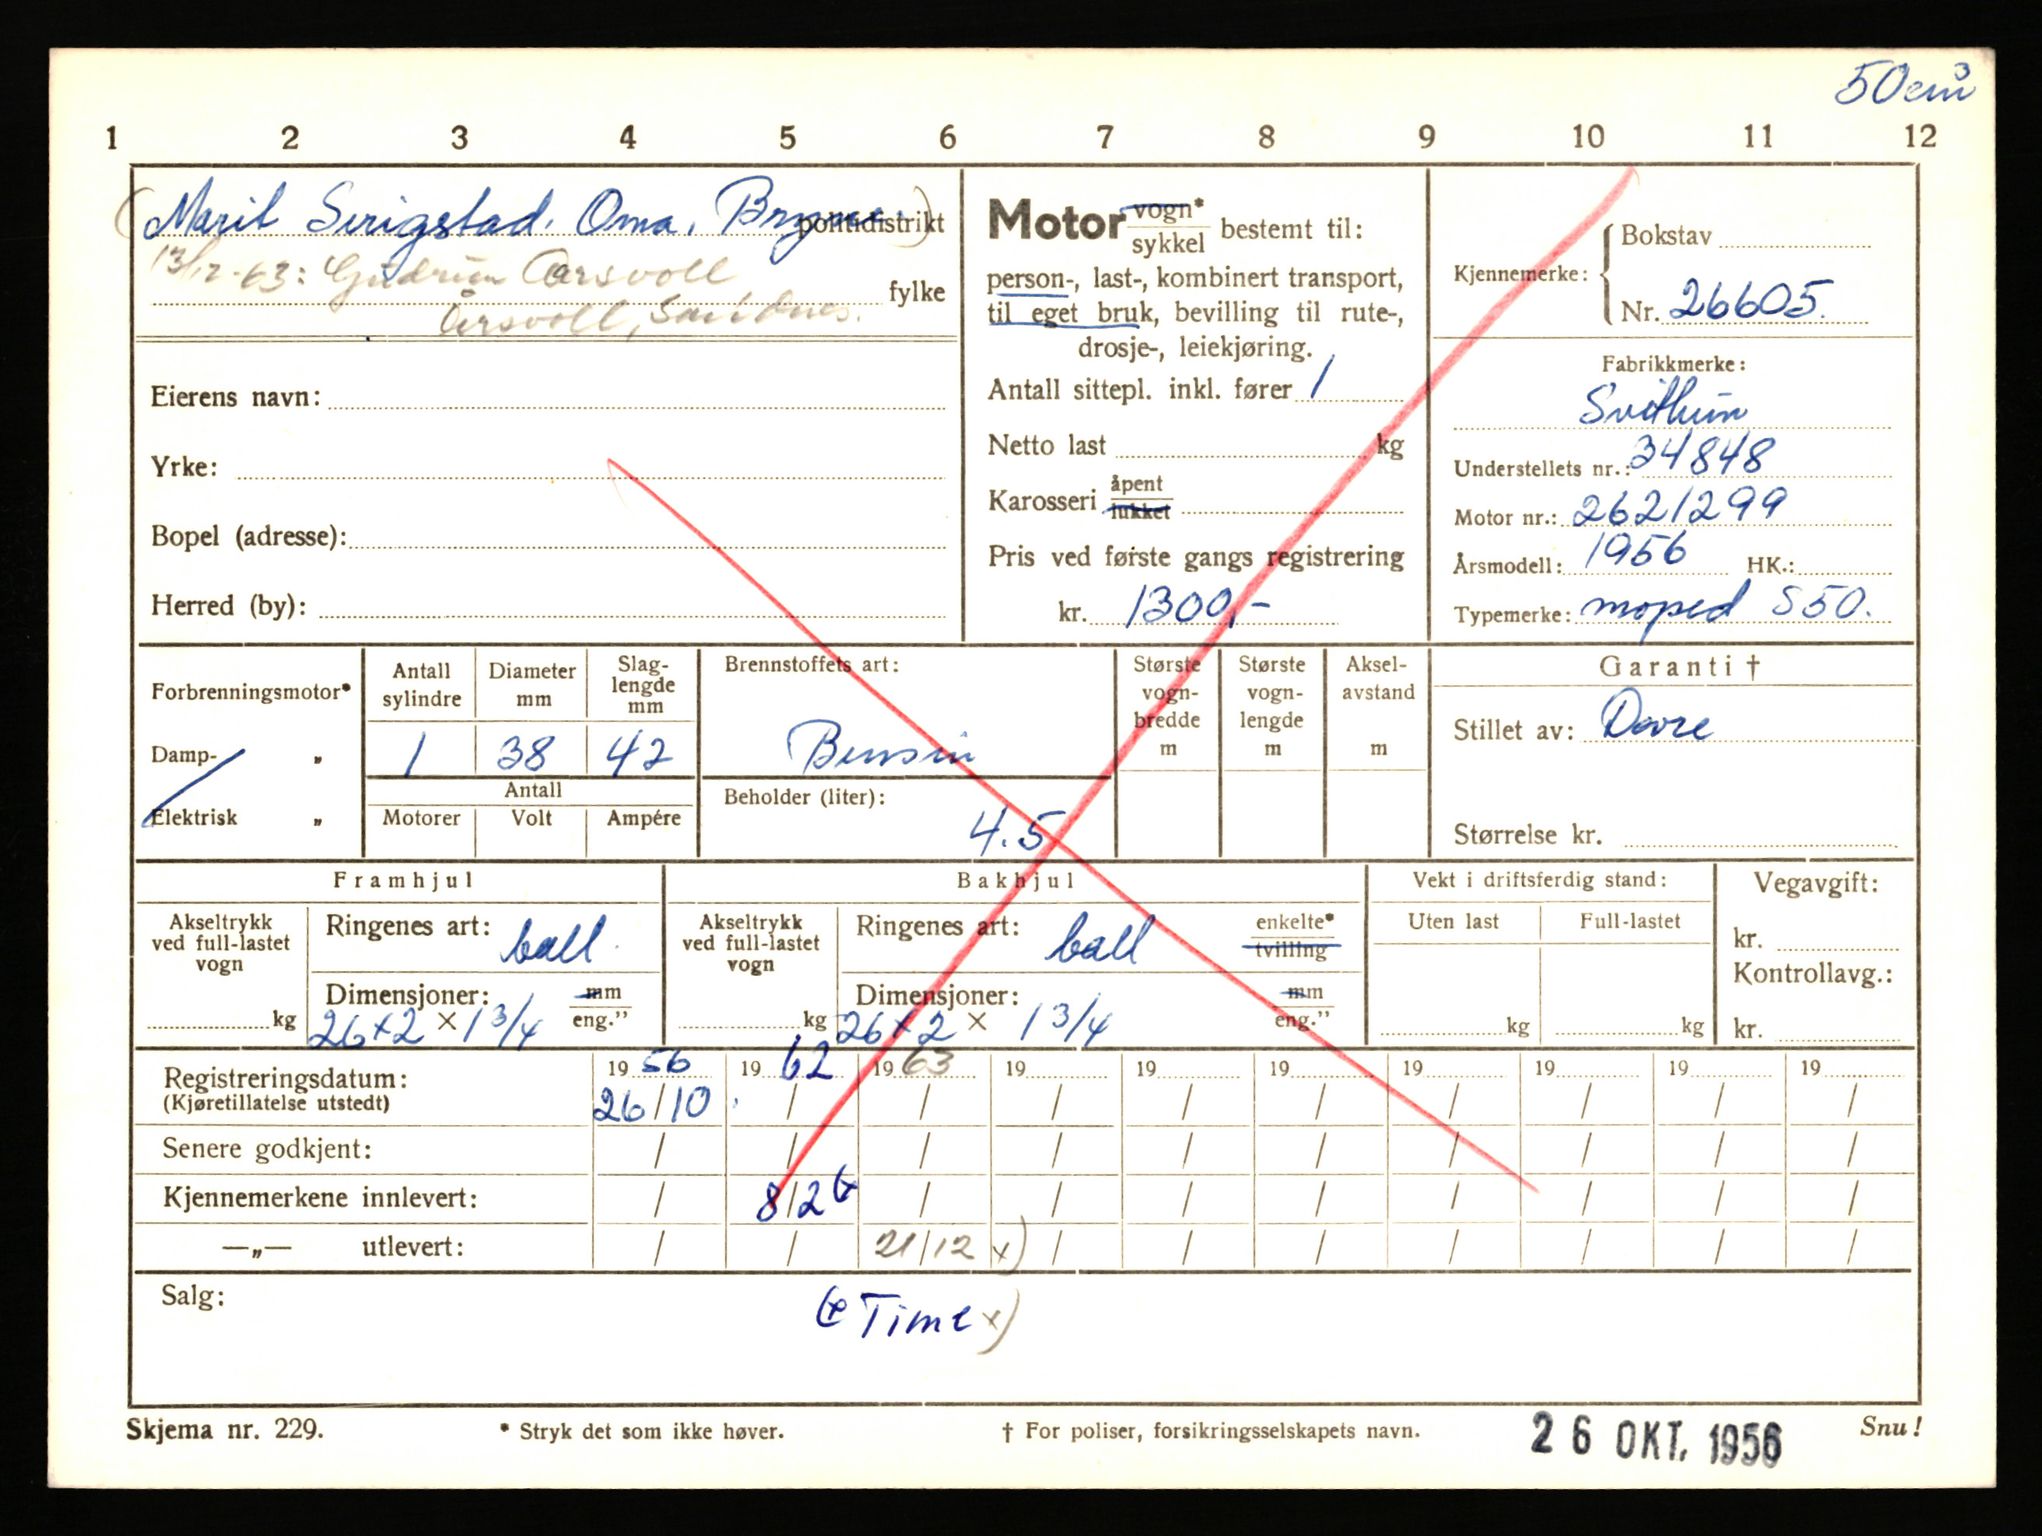 50 cm³
1 2 3 4 5 6 7 8 9 10 11 12
(Marit Serigstad. Oma, Bryne.) politidistrikt
13/12-63: Gudrun Aarsvoll,
Årsvoll, Sandnes. fylke
Eierens navn:
Yrke:
Bopel (adresse):
Herred (by):
Motor vogn* sykkel bestemt til:
person-, last-, kombinert transport,
til eget bruk, bevilling til rute-,
drosje-, leiekjøring.
Antall sittepl. inkl. fører 1
Netto last kg
Karosseri åpent lukket
Pris ved første gangs registrering
kr. 1300,-
Kjennemerke: { Bokstav
Nr. 26605.
Fabrikkmerke:
Svithun
Understellets nr.: 34848
Motor nr.: 2621299
Årsmodell: 1956 HK.:
Typemerke: moped S50.
Forbrenningsmotor*
Damp- „
Elektrisk „
Antall sylindre Diameter mm Slag-lengde mm
1 38 42
Antall
Motorer Volt Ampére
Brennstoffets art:
Bensin
Beholder (liter):
4.5
Største vogn-bredde m
Største vogn-lengde m
Aksel-avstand m
Garanti †
Stillet av: Dovre
Størrelse kr.
Framhjul
Akseltrykk ved full-lastet vogn
kg
Ringenes art: ball
Dimensjoner: mm eng.”
26x2 x 1 3/4
Bakhjul
Akseltrykk ved full-lastet vogn
kg
Ringenes art: ball enkelte* tvilling
Dimensjoner: mm eng.”
26x2 x 1 3/4
Vekt i driftsferdig stand:
Uten last Full-lastet
kg kg
Vegavgift:
kr.
Kontrollavg.:
kr.
Registreringsdatum: 19 56 19 62 19 63 19 19 19 19 19 19 19
(Kjøretillatelse utstedt) 26/10 / / / / / / / / /
Senere godkjent: / / / / / / / / / /
Kjennemerkene innlevert: / 8/2 (x / / / / / / / /
—„— utlevert: / / 21/12 x) / / / / / / /
Salg: (x Time x)
Skjema nr. 229. * Stryk det som ikke høver. † For poliser, forsikringsselskapets navn. 26 OKT. 1956 Snu!